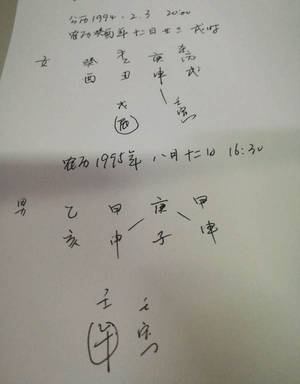 公历1994.2.3 20:00
农历癸酉年十二月廿三 戌时
女 癸 乙 庚 丙
酉 丑 申 戌
戊 壬
辰 寅
农历1995年 八月十二日 16:30
男 乙 甲 庚 甲
亥 申 子 申
壬 壬
午 寅